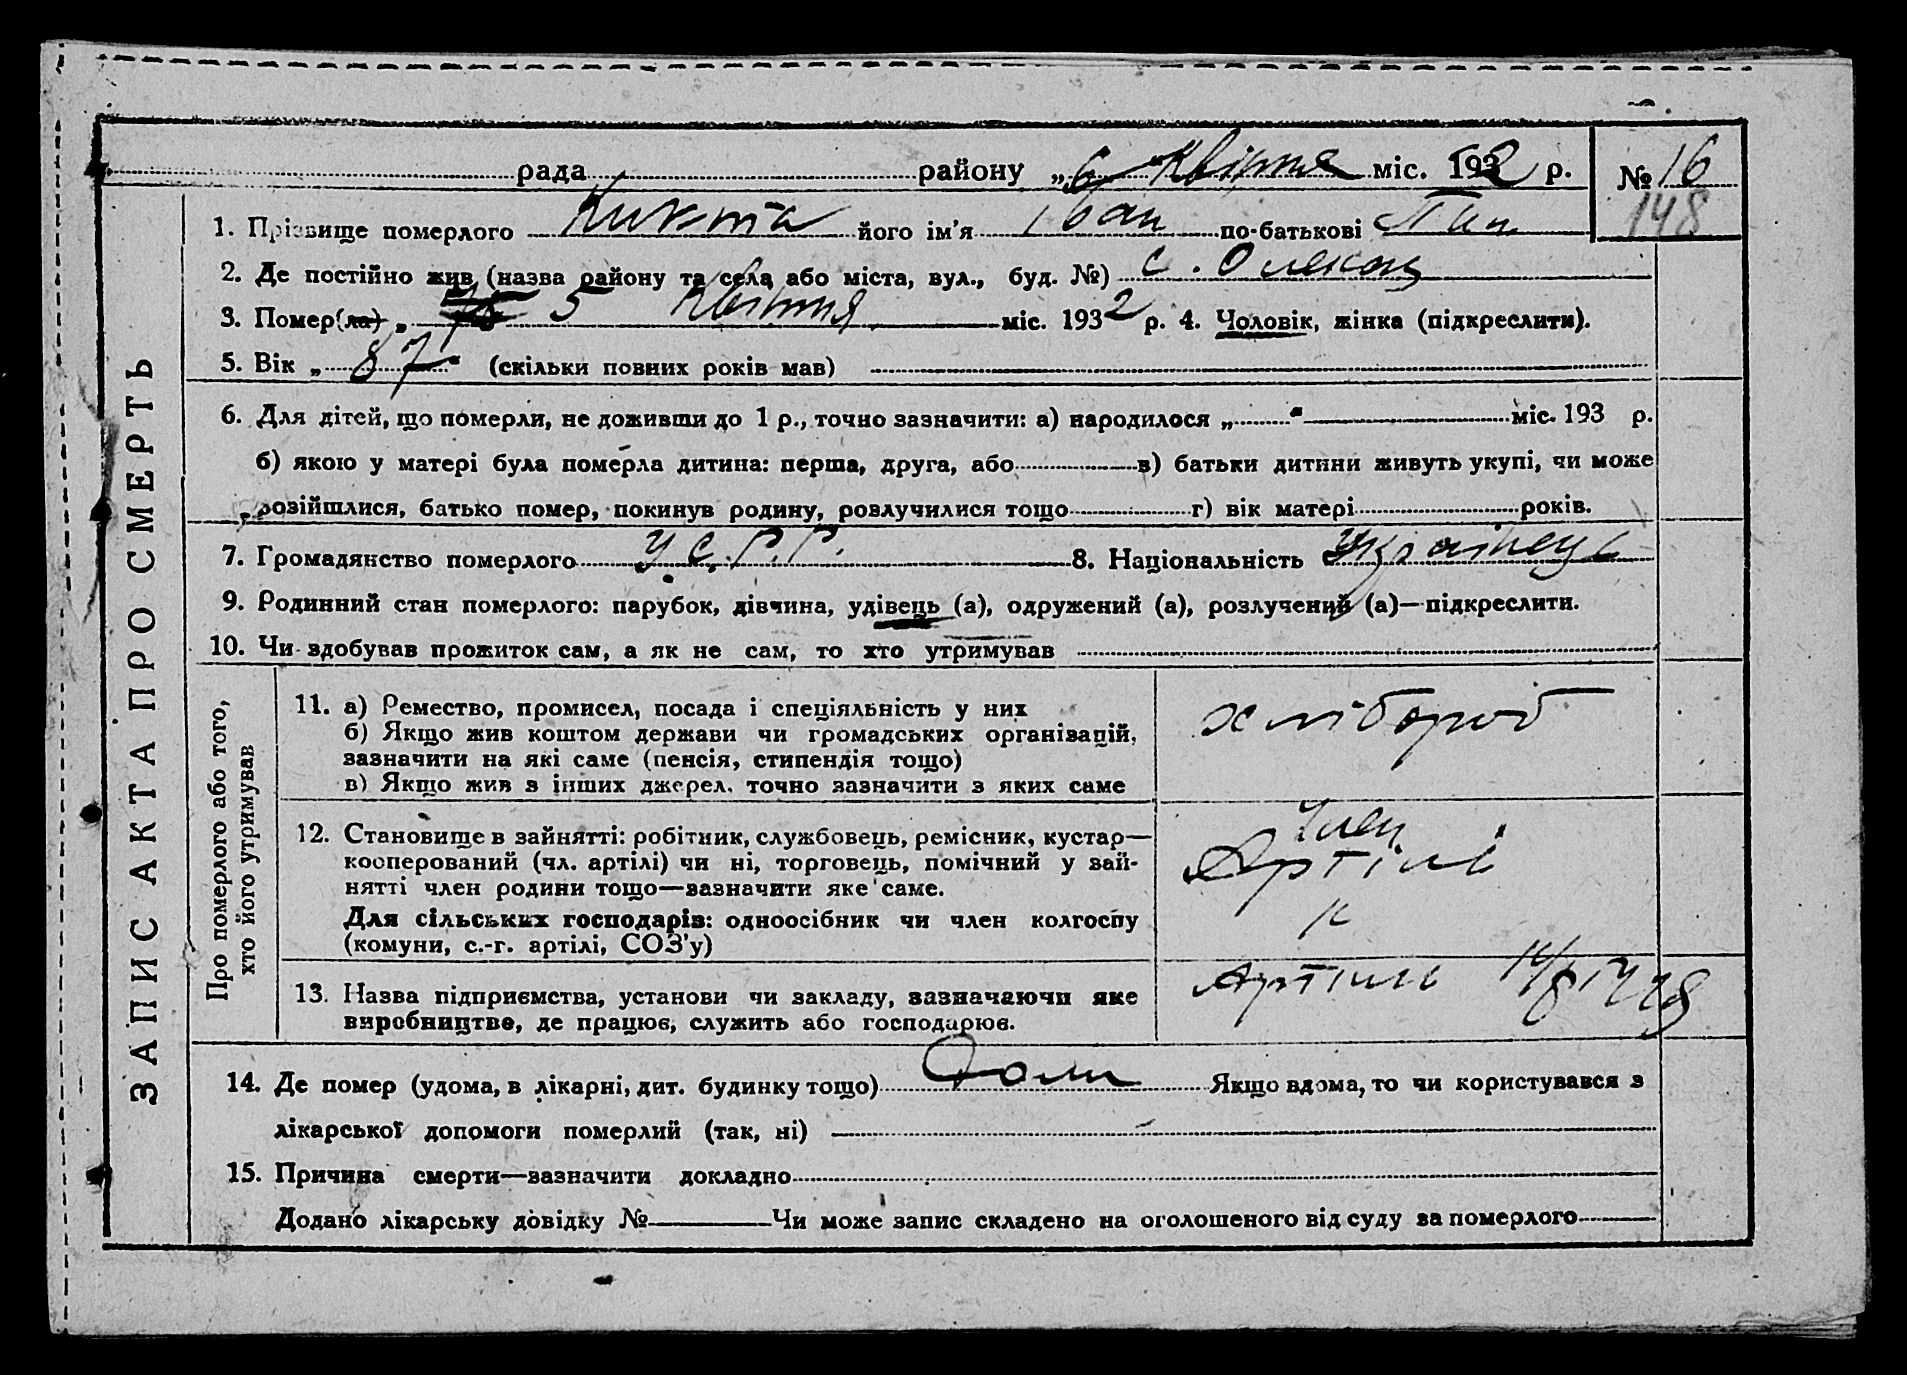 рада районе „6 Квітня міс. 1932 р. № 16
148
1. Прізвище померлого Микита його ім'я Іван по-батькові
2. Де постійно жив (назва району та села або міста, вул., буд. №) с.
3. Помер(ла) „ 5 Квітня міс. 1932 р. 4. Чоловік, жінка (підкреслити).
5. Вік „87“ (скільки повних років мав)
6. Для дітей, що померли, не доживши до 1 р., точно зазначити: а) народилося „ “ міс. 193 р.
б) якою у матері була померла дитина: перша, друга, або в) батьки дитини живуть укупі, чи може
розійшлися, батько помер, покинув родину, розлучилися тощо г) вік матері років.
7. Громадянство померлого У.С.Р.Р. 8. Національність Українець
9. Родинний стан померлого: парубок, дівчина, удівець (а), одружений (а), розлучений (а)—підкреслити.
10. Чи здобував прожиток сам, а як не сам, то хто утримував
ЗАПИС АКТА ПРО СМЕРТЬ
Про померлого або того,
хто його утримував
11. а) Ремество, промисел, посада і спеціяльність у них
б) Якщо жив коштом держави чи громадських організацій,
зазначити на які саме (пенсія, стипендія тощо)
в) Якщо жив з інших джерел, точно зазначити з яких саме
хлібороб
12. Становище в зайнятті: робітник, службовець, ремісник, кустар—
кооперований (чл. артілі) чи ні, торговець, помічний у зай-
нятті член родини тощо—зазначити яке саме.
Для сільських господарів: одноосібник чи член колгоспу
(комуни, с.-г. артілі, СОЗ'у)
Член
Артілі
13. Назва підприємства, установи чи закладу, зазначаючи яке
виробництво, де працює, служить або господарює.
Артіль
14. Де помер (удома, в лікарні, дит. будинку тощо) Дома Якщо вдома, то чи користувався з
лікарської допомоги померлий (так, ні)
15. Причина смерти—зазначити докладно
Додано лікарську довідку № Чи може запис складено на оголошеного від суду за померлого